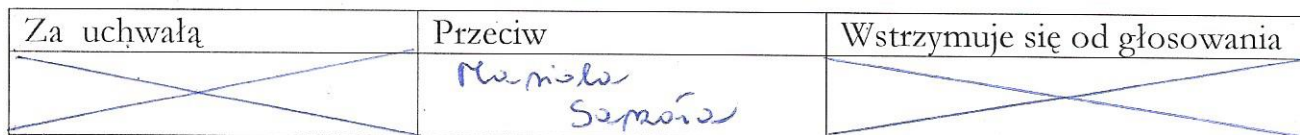 Za uchwałą Przeciw Wstrzymuje się od głosowania
Mariola